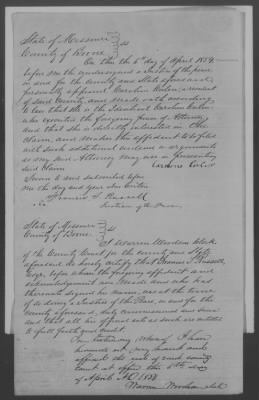 State of Missouri
County of Boone } ss
On this the 6th day of April 1859
before me the undersigned a Justice of the peace
in and for the County and State aforesaid
personally appeared Caroline Carlos a resident
of said County, and made oath according
to law that she is the identical Caroline Carlos
who executed the foregoing Power of Attorney
and that she is directly interested in the
claim, and makes this affidavit to be filed
with such additional evidence or arguments
as my said Attorney may use in presenting
said claim
Sworn to and subscribed before
me the day and year above written
Francis T. Russell
Justice of the Peace
State of Missouri
County of Boone } ss
I Warren Woodson clerk
of the County Court for the county and State
aforesaid do hereby certify that Francis T. Russell
Esqr. before whom the foregoing affidavit and
acknowledgement was made and who has
thereunto signed his name, was at the time
of so doing a Justice of the Peace, in and for the
County aforesaid, duly commissioned and sworn
and that all his official acts as such are entitled
to full faith and credit.
In testimony whereof I have
hereunto set my hand and
affixed the seal of said county
court at office this 6th day
of April A.D. 1859
Warren Woodson clerk